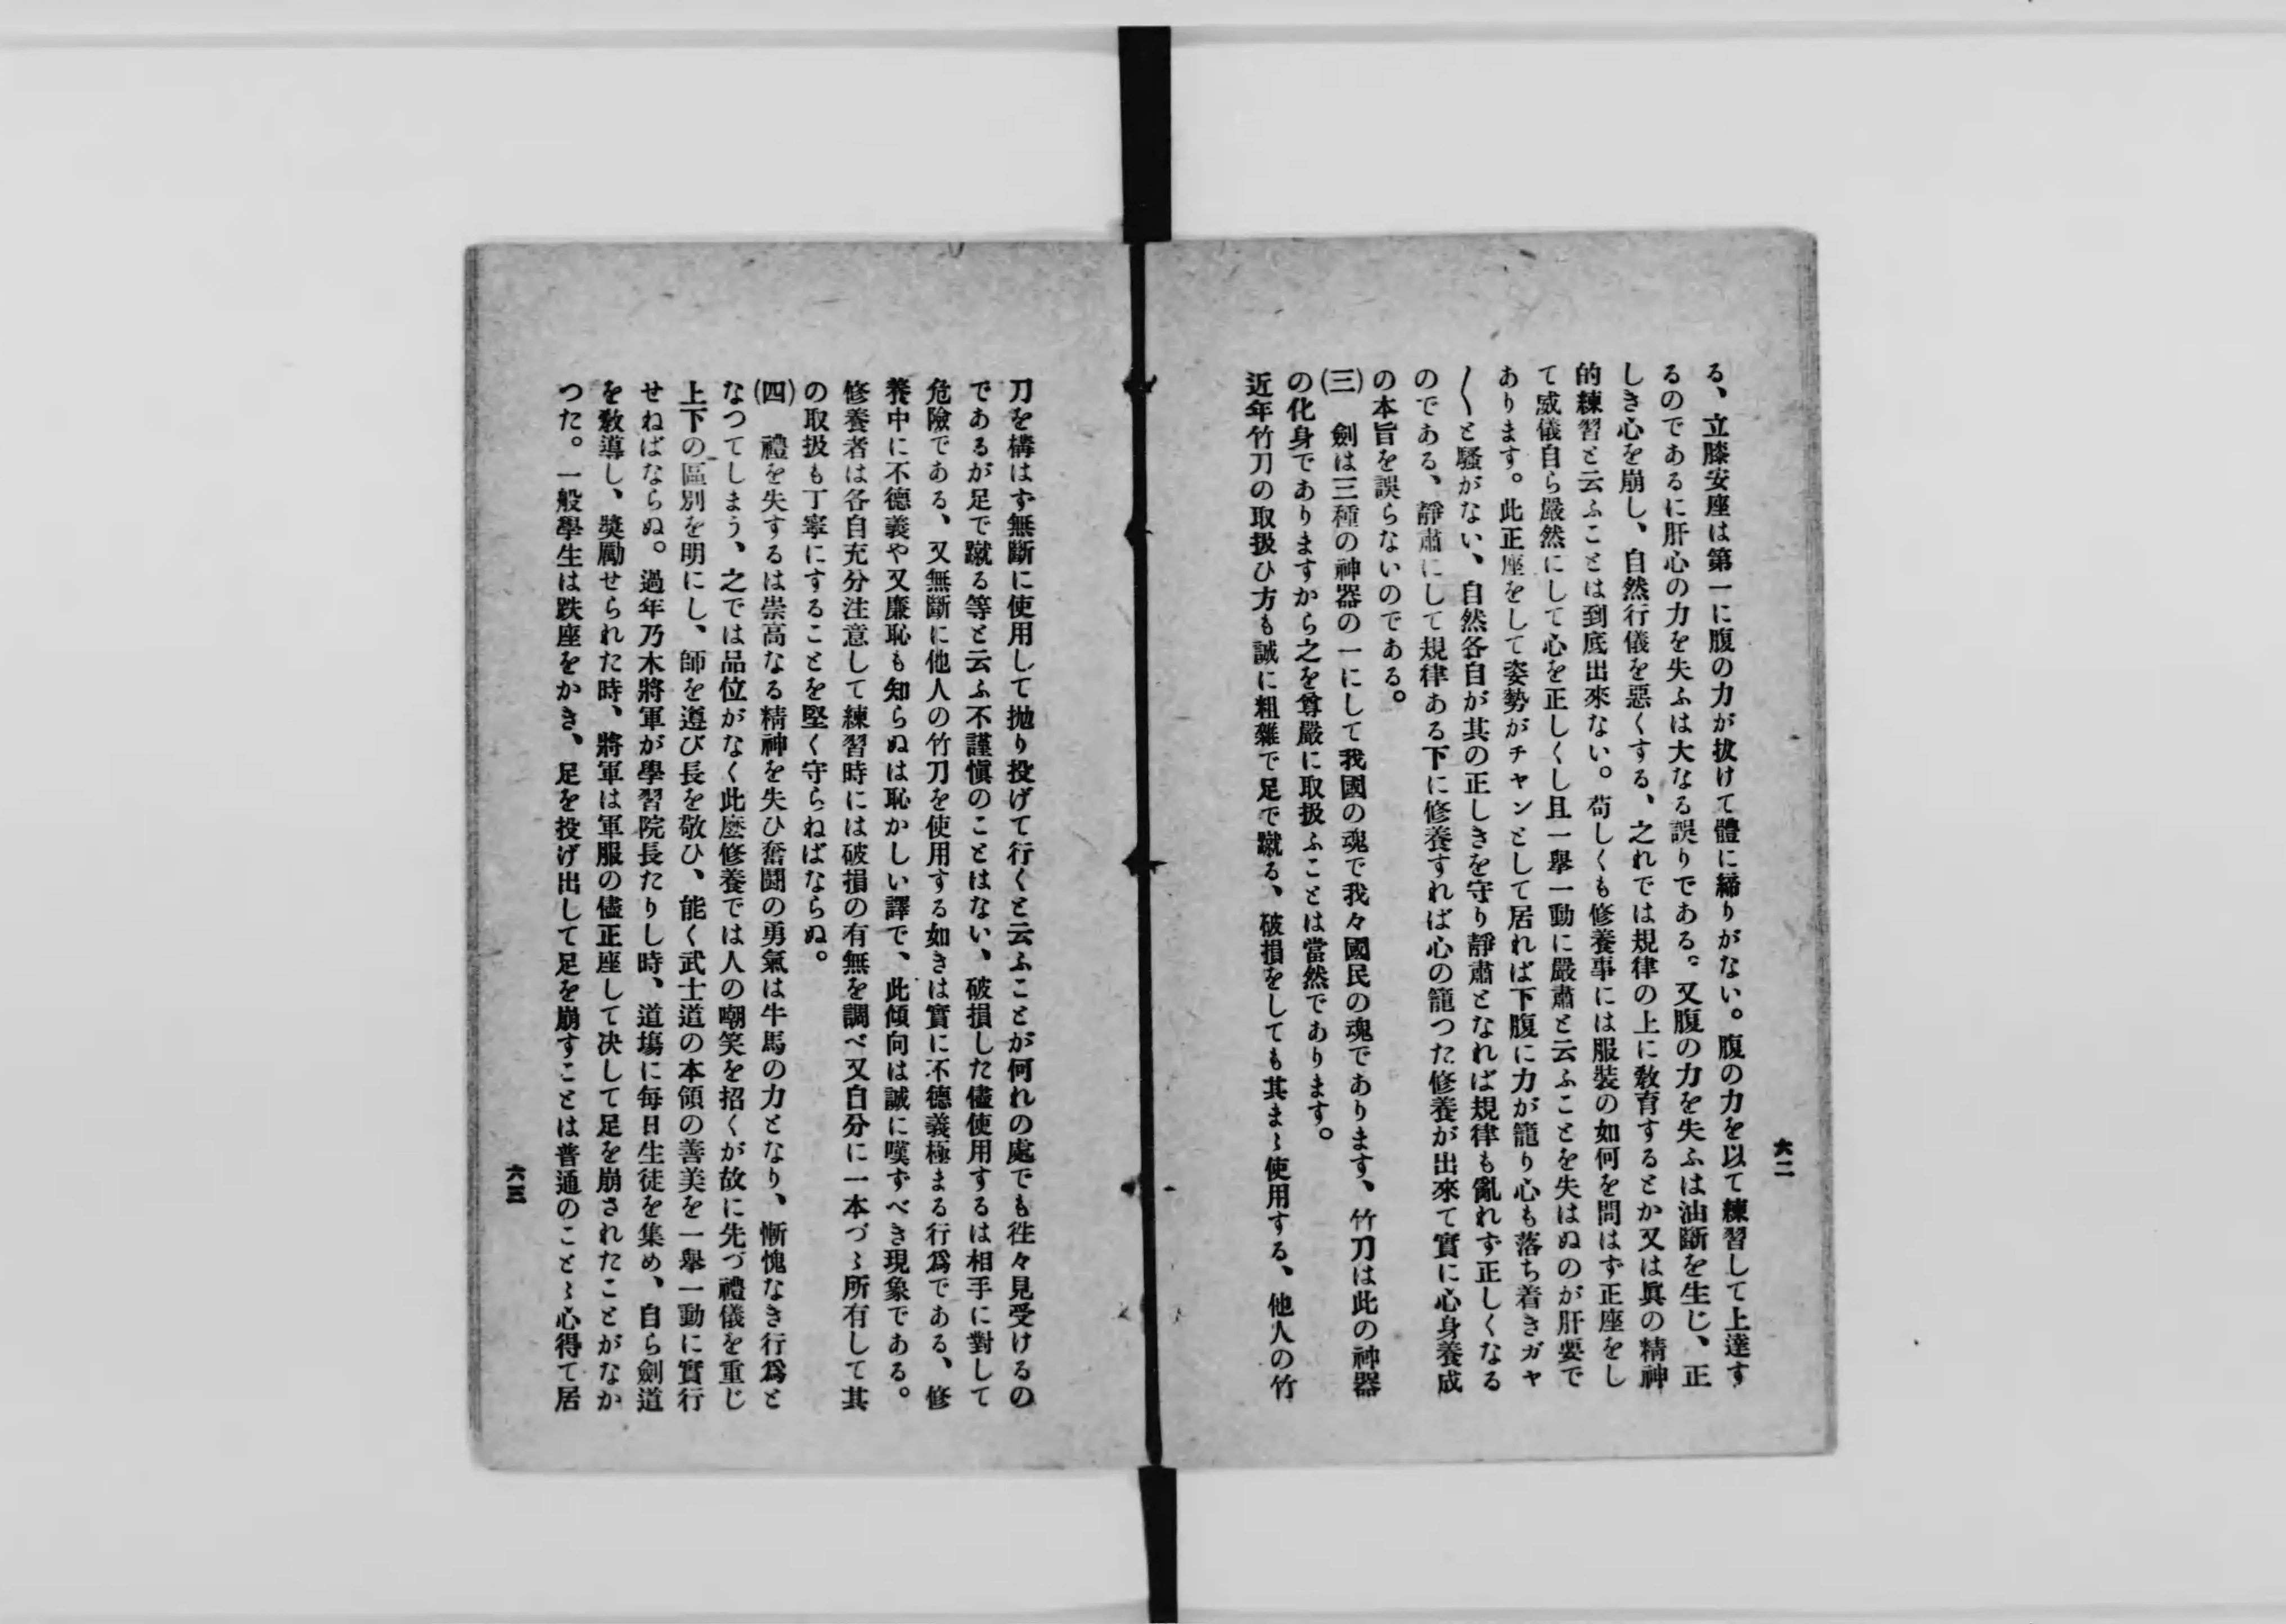 六二
る、立膝安座は第一に腹の力が抜けて體に締りがない。腹の力を以て練習して上達す
るのであるに肝心の力を失ふは大なる誤りである。又腹の力を失ふは油斷を生じ、正
しき心を崩し、自然行儀を惡くする、之れでは規律の上に敎育するとか又は眞の精神
的練習と云ふことは到底出來ない。苟しくも修養事には服裝の如何を問はず正座をし
て威儀自ら嚴然にして心を正しくし且一擧一動に嚴肅と云ふことを失はぬのが肝要で
あります。此正座をして姿勢がチャンとして居れば下腹に力が籠り心も落ち着きガヤ
〳〵と騷がない、自然各自が其の正しきを守り靜肅となれば規律も亂れず正しくなる
のである、靜肅にして規律ある下に修養すれば心の籠つた修養が出來て實に心身養成
の本旨を誤らないのである。
(三)　劍は三種の神器の一にして我國の魂で我々國民の魂であります、竹刀は此の神器
の化身でありますから之を尊嚴に取扱ふことは當然であります。
近年竹刀の取扱ひ方も誠に粗雜で足で蹴る、破損をしても其まゝ使用する、他人の竹
刀を構はず無斷に使用して抛り投げて行くと云ふことが何れの處でも徃々見受けるの
であるが足で蹴る等と云ふ不謹愼のことはない、破損した儘使用するは相手に對して
危險である、又無斷に他人の竹刀を使用する如きは實に不德義極まる行爲である、修
養中に不德義や又廉恥も知らぬは恥かしい譯で、此傾向は誠に嘆ずべき現象である。
修養者は各自充分注意して練習時には破損の有無を調べ又自分に一本づゝ所有して其
の取扱も丁寧にすることを堅く守らねばならぬ。
(四)　禮を失するは崇高なる精神を失ひ奮鬪の勇氣は牛馬の力となり、慚愧なき行爲と
なつてしまう、之では品位がなく此麽修養では人の嘲笑を招くが故に先づ禮儀を重じ
上下の區別を明にし、師を遵び長を敬ひ、能く武士道の本領の善美を一擧一動に實行
せねばならぬ。過年乃木將軍が學習院長たりし時、道塲に每日生徒を集め、自ら劍道
を敎導し、奬勵せられた時、將軍は軍服の儘正座して決して足を崩されたことがなか
つた。一般學生は趺座をかき、足を投げ出して足を崩すことは普通のことゝ心得て居
六三